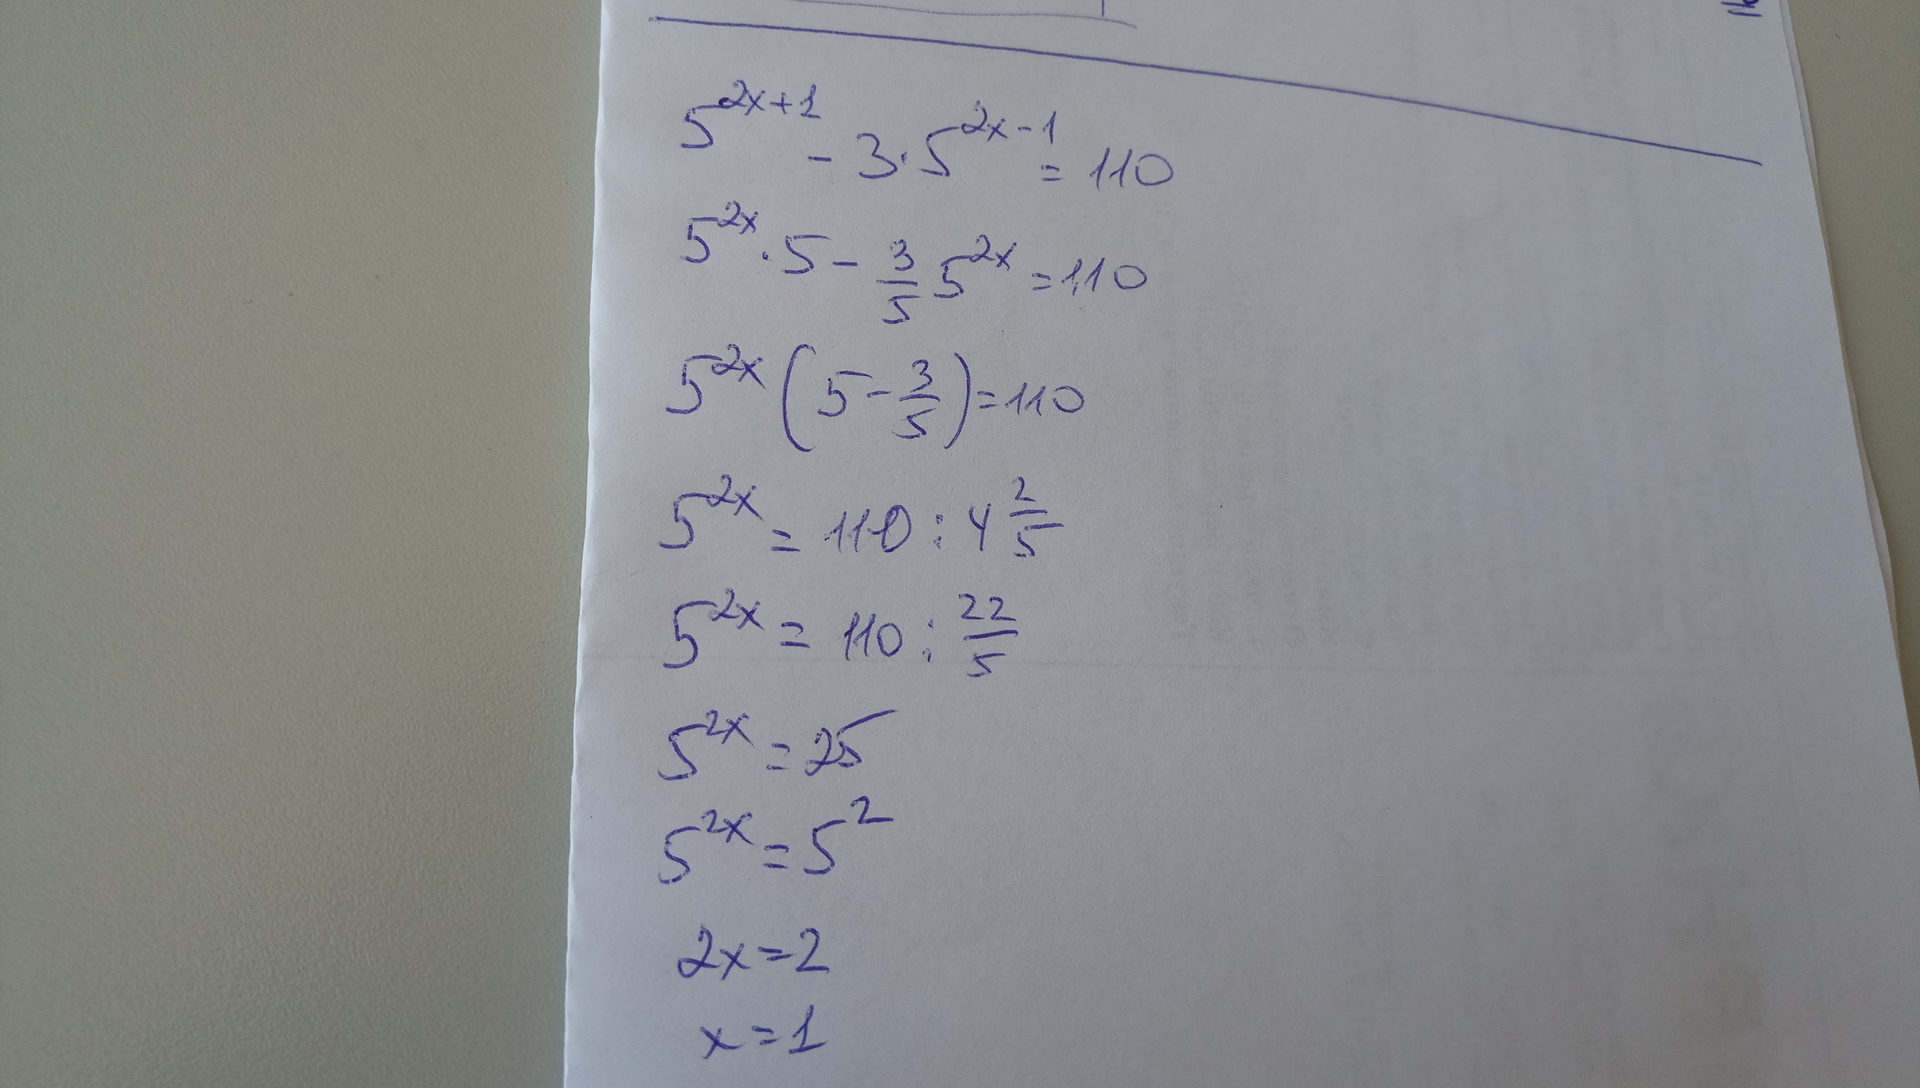 5^{2x+1} - 3·5^{2x-1} = 110
5^{2x}·5 - \frac{3}{5} 5^{2x} = 110
5^{2x} (5 - \frac{3}{5}) = 110
5^{2x} = 110 : 4\frac{2}{5}
5^{2x} = 110 : \frac{22}{5}
5^{2x} = 25
5^{2x} = 5^2
2x = 2
x = 1